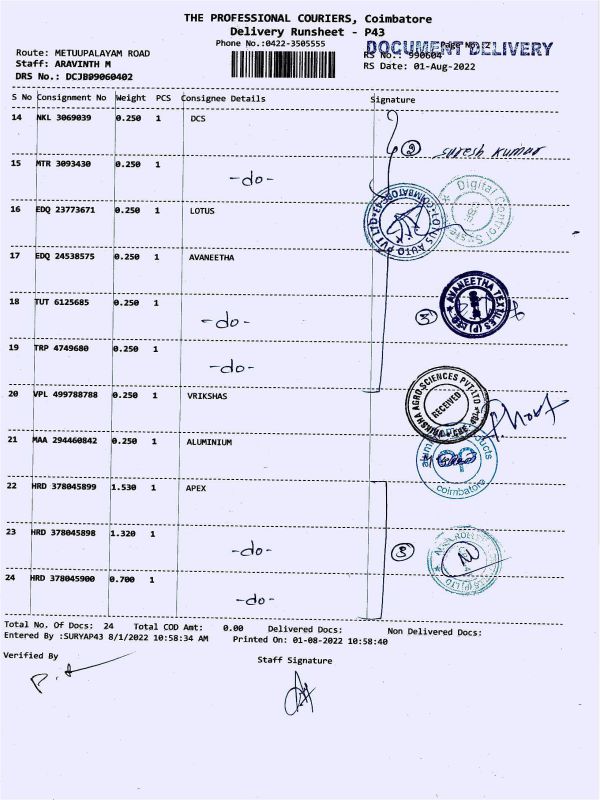 THE PROFESSIONAL COURIERS, Coimbatore
Delivery Runsheet - P43
Phone No.:0422-3505555
DOCUMENT DELIVERY
Page No.:2
Route: METUUPALAYAM ROAD
RS No.: 990604
Staff: ARAVINTH M
RS Date: 01-Aug-2022
DRS No.: DCJB99060402
S No Consignment No Weight PCS Consignee Details Signature
14 NKL 3069039 0.250 1 DCS
2 SURESH KUMAR
15 MTR 3093430 0.250 1
-do-
Digital Control Syste
LOTUS AUTO PVT LTD COIMBATORE-43
16 EDQ 23773671 0.250 1 LOTUS
17 EDQ 24538575 0.250 1 AVANEETHA
AVANEETHA TEXTILES (P) LTD
18 TUT 6125685 0.250 1
-do-
3
19 TRP 4749680 0.250 1
-do-
20 VPL 499788788 0.250 1 VRIKSHAS
VRIKSHA AGRO SCIENCES PVT LTD
RECEIVED
21 MAA 294460842 0.250 1 ALUMINIUM
ap
coimbatore
22 HRD 378045899 1.530 1 APEX
23 HRD 378045898 1.320 1
-do-
3
24 HRD 378045900 0.700 1
-do-
Total No. Of Docs: 24 Total COD Amt: 0.00 Delivered Docs: Non Delivered Docs:
Entered By :SURYAP43 8/1/2022 10:58:34 AM Printed On: 01-08-2022 10:58:40
Verified By
Staff Signature